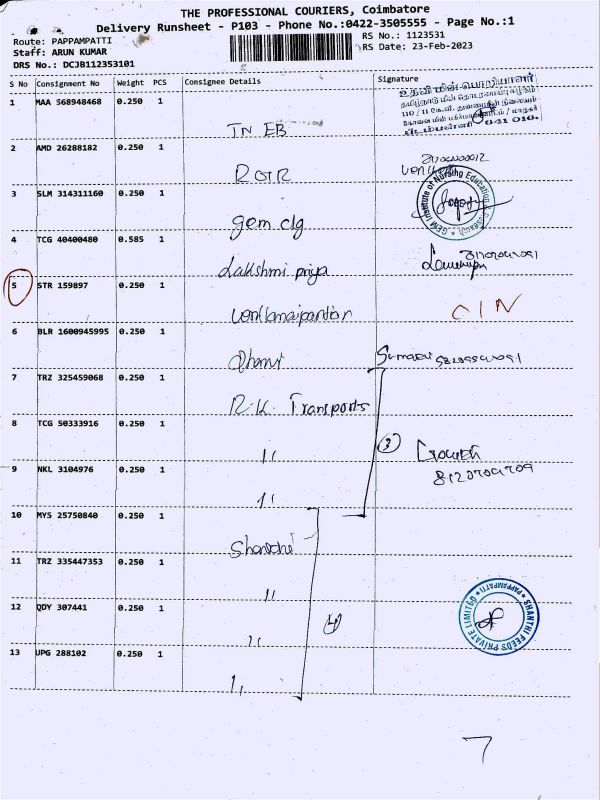 THE PROFESSIONAL COURIERS, Coimbatore
Delivery Runsheet - P103 - Phone No.:0422-3505555 - Page No.:1
Route: PAPPAMPATTI RS No.: 1123531
Staff: ARUN KUMAR RS Date: 23-Feb-2023
DRS No.: DCJB112353101
S No Consignment No Weight PCS Consignee Details Signature
1 MAA 568948468 0.250 1 TN EB
உதவி மின் பொறியாளர்
2 AMD 26288182 0.250 1 RGR
3 SLM 314311160 0.250 1 gem clg
GEM Institute of Nursing Education
4 TCG 40400480 0.585 1 Lakshmi priya
5 STR 159897 0.250 1 CIN
6 BLR 1600945995 0.250 1
7 TRZ 325459068 0.250 1 R.K. Transports
8 TCG 50333916 0.250 1 ,,
3
9 NKL 3104976 0.250 1 ,,
10 MYS 25750840 0.250 1
11 TRZ 335447353 0.250 1 ,,
12 QDY 307441 0.250 1 ,,
4
SHANTHI FEEDS PRIVATE LIMITED PAPPAMPATTI
13 UPG 288102 0.250 1 ,,
7